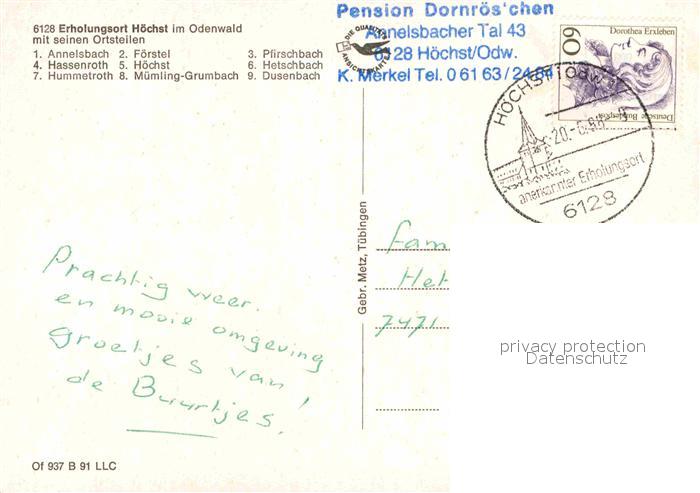 6128 Erholungsort Höchst im Odenwald
mit seinen Ortsteilen
1. Annelsbach 2. Förstel 3. Pfirschbach
4. Hassenroth 5. Höchst 6. Hetschbach
7. Hummetroth 8. Mümling-Grumbach 9. Dusenbach
Pension Dornrös'chen
Annelsbacher Tal 43
6128 Höchst/Odw.
K. Merkel Tel. 0 61 63/
DIE QUALITÄTS
ANSICHTSKARTE
Dorothea Erxleben
60
Deutsche Bundespost
HÖCHST i Odw
20.-6.
anerkannter Erholungsort
6128
Prachtig weer.
en mooie omgeving
Groetjes van!
de Buurtjes.
Gebr. Metz, Tübingen
fam
Het
7471
privacy protection
Datenschutz
Of 937 B 91 LLC